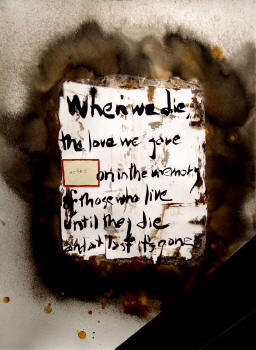 When we die,
the love we gave
on in the memory
of those who live
until they die
and at last it's gone